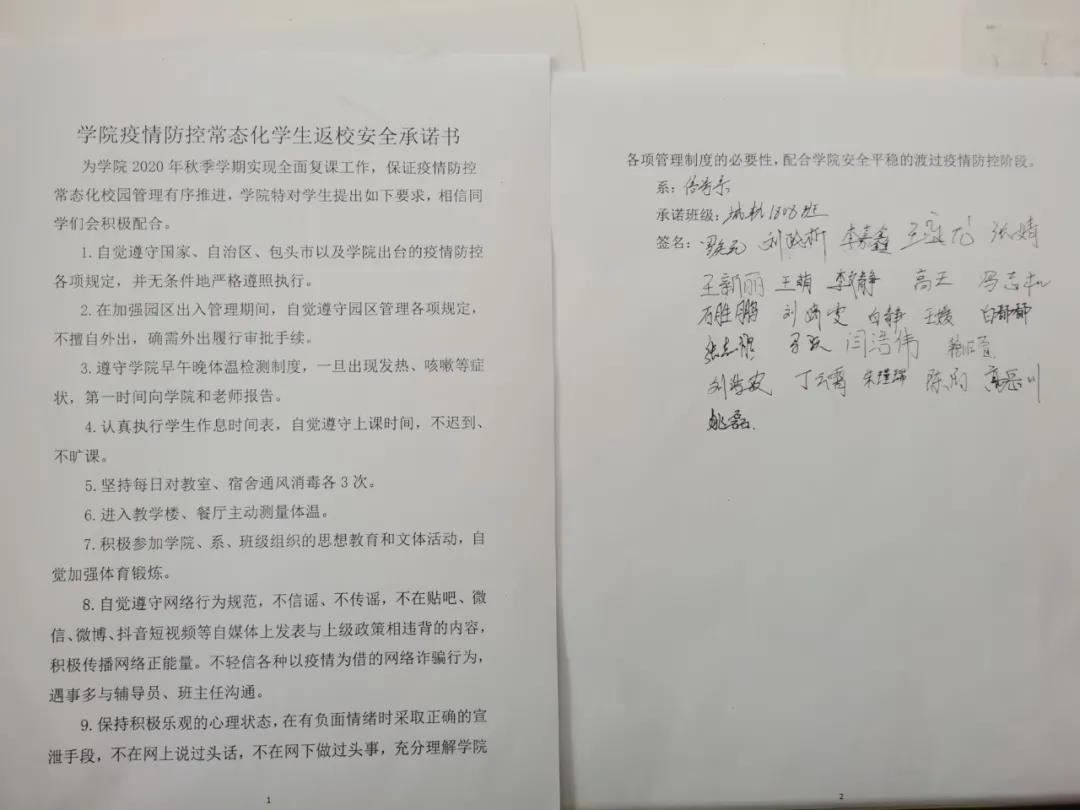 学院疫情防控常态化学生返校安全承诺书
为学院 2020 年秋季学期实现全面复课工作，保证疫情防控
常态化校园管理有序推进，学院特对学生提出如下要求，相信同
学们会积极配合。
1.自觉遵守国家、自治区、包头市以及学院出台的疫情防控
各项规定，并无条件地严格遵照执行。
2.在加强园区出入管理期间，自觉遵守园区管理各项规定，
不擅自外出，确需外出履行审批手续。
3.遵守学院早午晚体温检测制度，一旦出现发热、咳嗽等症
状，第一时间向学院和老师报告。
4.认真执行学生作息时间表，自觉遵守上课时间，不迟到、
不旷课。
5.坚持每日对教室、宿舍通风消毒各 3 次。
6.进入教学楼、餐厅主动测量体温。
7.积极参加学院、系、班级组织的思想教育和文体活动，自
觉加强体育锻炼。
8.自觉遵守网络行为规范，不信谣、不传谣，不在贴吧、微
信、微博、抖音短视频等自媒体上发表与上级政策相违背的内容，
积极传播网络正能量。不轻信各种以疫情为借的网络诈骗行为，
遇事多与辅导员、班主任沟通。
9.保持积极乐观的心理状态，在有负面情绪时采取正确的宣
泄手段，不在网上说过头话，不在网下做过头事，充分理解学院
1
各项管理制度的必要性，配合学院安全平稳的渡过疫情防控阶段。
系：
承诺班级：城轨1808班
签名： 李嘉鑫 张婧
王新丽 王萌 李静 高天 冯志
石胜鹏 刘 白静 王媛 白娜娜
闫浩伟
刘 丁云霄 朱瑾瑞 陈雨 高磊川
姚磊
2